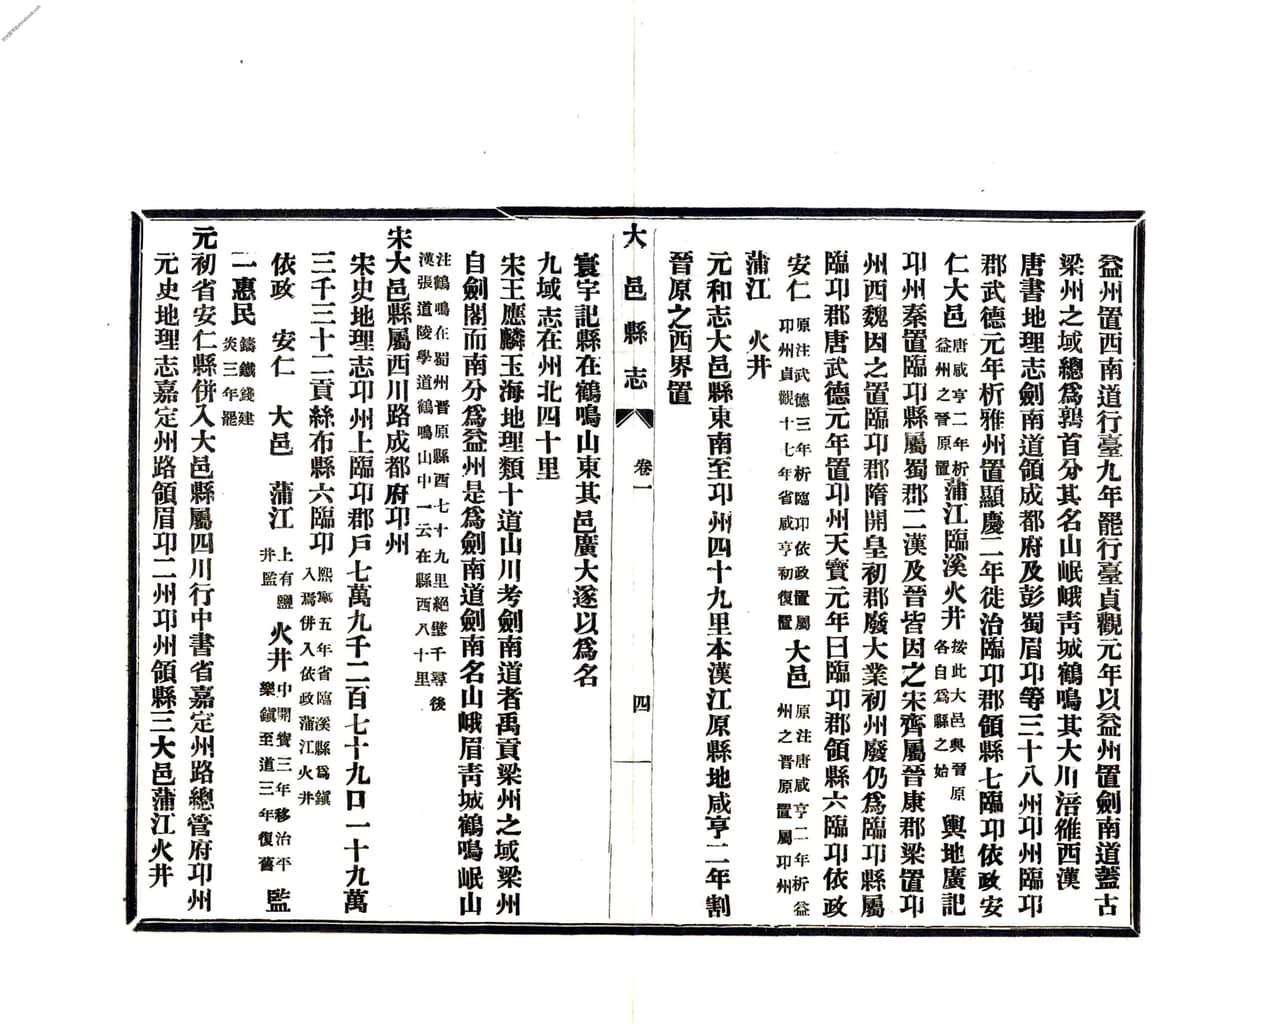 益州置西南道行臺九年罷行臺貞觀元年以益州置劍南道蓋古
梁州之域總爲鶉首分其名山岷峨靑城鶴鳴其大川涪雒西漢
唐書地理志劍南道領成都府及彭蜀眉邛等三十八州邛州臨邛
郡武德元年析雅州置顯慶二年徙治臨邛郡領縣七臨邛依政安
仁大邑唐咸亨二年析益州之晉原置蒲江臨溪火井按此大邑與晉原各自爲縣之始輿地廣記
邛州秦置臨邛縣屬蜀郡二漢及晉皆因之宋齊屬晉康郡梁置邛
州西魏因之置臨邛郡隋開皇初郡廢大業初州廢仍爲臨邛縣屬
臨邛郡唐武德元年置邛州天寶元年曰臨邛郡領縣六臨邛依政
安仁原注武德三年析臨邛依政置屬邛州貞觀十七年省咸亨初復置大邑原注唐咸亨二年析益州之晉原置屬邛州
蒲江 火井
元和志大邑縣東南至邛州四十九里本漢江原縣地咸亨二年割
晉原之西界置
大邑縣志 卷一 四
寰宇記縣在鶴鳴山東其邑廣大遂以爲名
九域志在州北四十里
宋王應麟玉海地理類十道山川考劍南道者禹貢梁州之域梁州
自劍閣而南分爲益州是爲劍南道劍南名山峨眉靑城鶴鳴岷山
注鶴鳴在蜀州晉原縣西七十九里絕壁千尋後漢張道陵學道鶴鳴山中一云在縣西八十里
宋大邑縣屬西川路成都府邛州
宋史地理志邛州上臨邛郡戶七萬九千二百七十九口一十九萬
三千三十二貢絲布縣六臨邛熙寧五年省臨溪縣爲鎭入焉併入依政蒲江火井
依政 安仁 大邑 蒲江上有鹽井監火井中開寶三年移治平樂鎭至道三年復舊監
一惠民鑄鐵錢建炎三年罷
元初省安仁縣併入大邑縣屬四川行中書省嘉定州路總管府邛州
元史地理志嘉定州路領眉邛二州邛州領縣三大邑蒲江火井